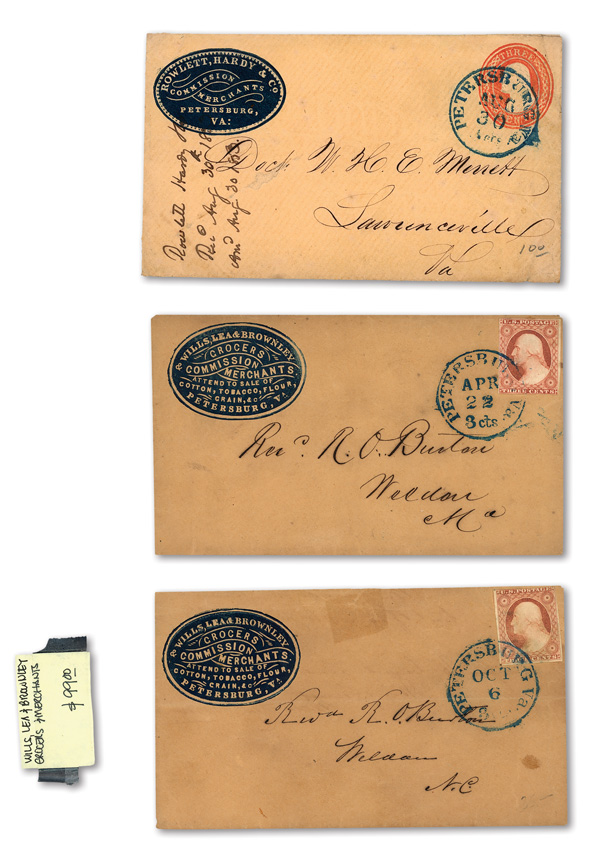 ROWLETT, HARDY & Co
COMMISSION
MERCHANTS
PETERSBURG,
VA:
THREE
PETERSBURG Va
AUG
30
Rowlett Hardy
Recd Aug 30
Ansd Aug 30
Doct. W. H. E. Merrett
Lawrenceville
Va
100
& WILLS, LEA & BROWNLEY
GROCERS
COMMISSION
MERCHANTS
ATTEND TO SALE OF
COTTON, TOBACCO, FLOUR,
GRAIN, &c
PETERSBURG, VA.
U.S. POSTAGE
THREE CENTS
PETERSBURG VA
APR
22
3 cts
Revd. R. O. Burton
Weldon
& WILLS, LEA & BROWNLEY
GROCERS
COMMISSION
MERCHANTS
ATTEND TO SALE OF
COTTON, TOBACCO, FLOUR,
GRAIN, &c
PETERSBURG, VA.
POSTAGE
CENTS
PETERSBURG Va.
OCT
6
Revd R. O. Burton
Weldon
N.C
WILLS, LEA & BROWNLEY
GROCERS & MERCHANTS
$ 99.00